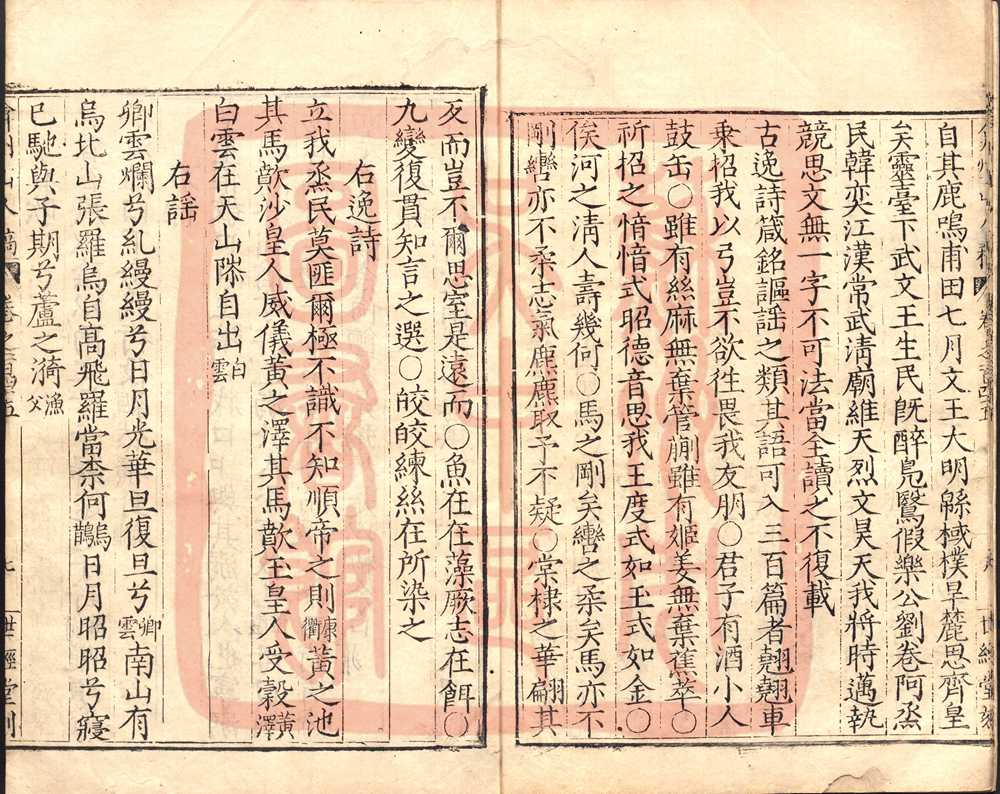 自其鹿鳴甫田七月文王大明緜棫樸旱麓思齊皇
矣靈臺下武文王生民旣醉鳧鷖假樂公劉卷阿烝
民韓奕江漢常武淸廟維天烈文昊天我將時邁執
競思文無一字不可法當全讀之不復載
古逸詩箴銘謳謠之類其語可入三百篇者翹翹車
乘招我以弓豈不欲往畏我友朋○君子有酒小人
鼓缶○雖有絲麻無棄管蒯雖有姬姜無棄蕉萃○
祈招之愔愔式昭德音思我王度式如玉式如金○
俟河之淸人壽幾何○馬之剛矣轡之柔矣馬亦不
剛轡亦不柔志氣麃麃取予不疑○棠棣之華翩其
反而豈不爾思室是遠而○魚在在藻厥志在餌○
九變復貫知言之選○皎皎練絲在所染之
右逸詩
立我烝民莫匪爾極不識不知順帝之則康衢黃之池
其馬歕沙皇人威儀黃之澤其馬歕玉皇人受穀黃澤
白雲在天山陊自出白雲
右謠
卿雲爛兮糺縵縵兮日月光華旦復旦兮卿雲南山有
烏北山張羅烏自高飛羅當柰何烏鵲日月昭昭兮寢
已馳與子期兮蘆之漪漁父
世經堂刻